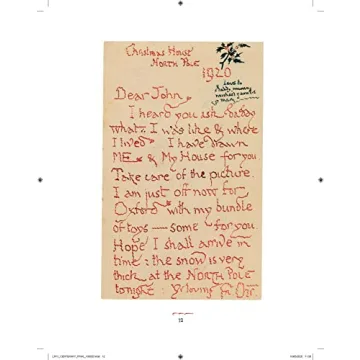 Christmas House
NORTH POLE
1920
Love to
daddy, mummy
michael & auntie
& mary
Dear John
I heard you ask daddy
what I was like & where
I lived I have drawn
ME & My House for you
Take care of the picture.
I am just off now for
Oxford with my bundle
of toys — some for you.
Hope I shall arrive in
time : the snow is very
thick at the NORTH POLE
tonight : Yr loving Fr. Chr.
12